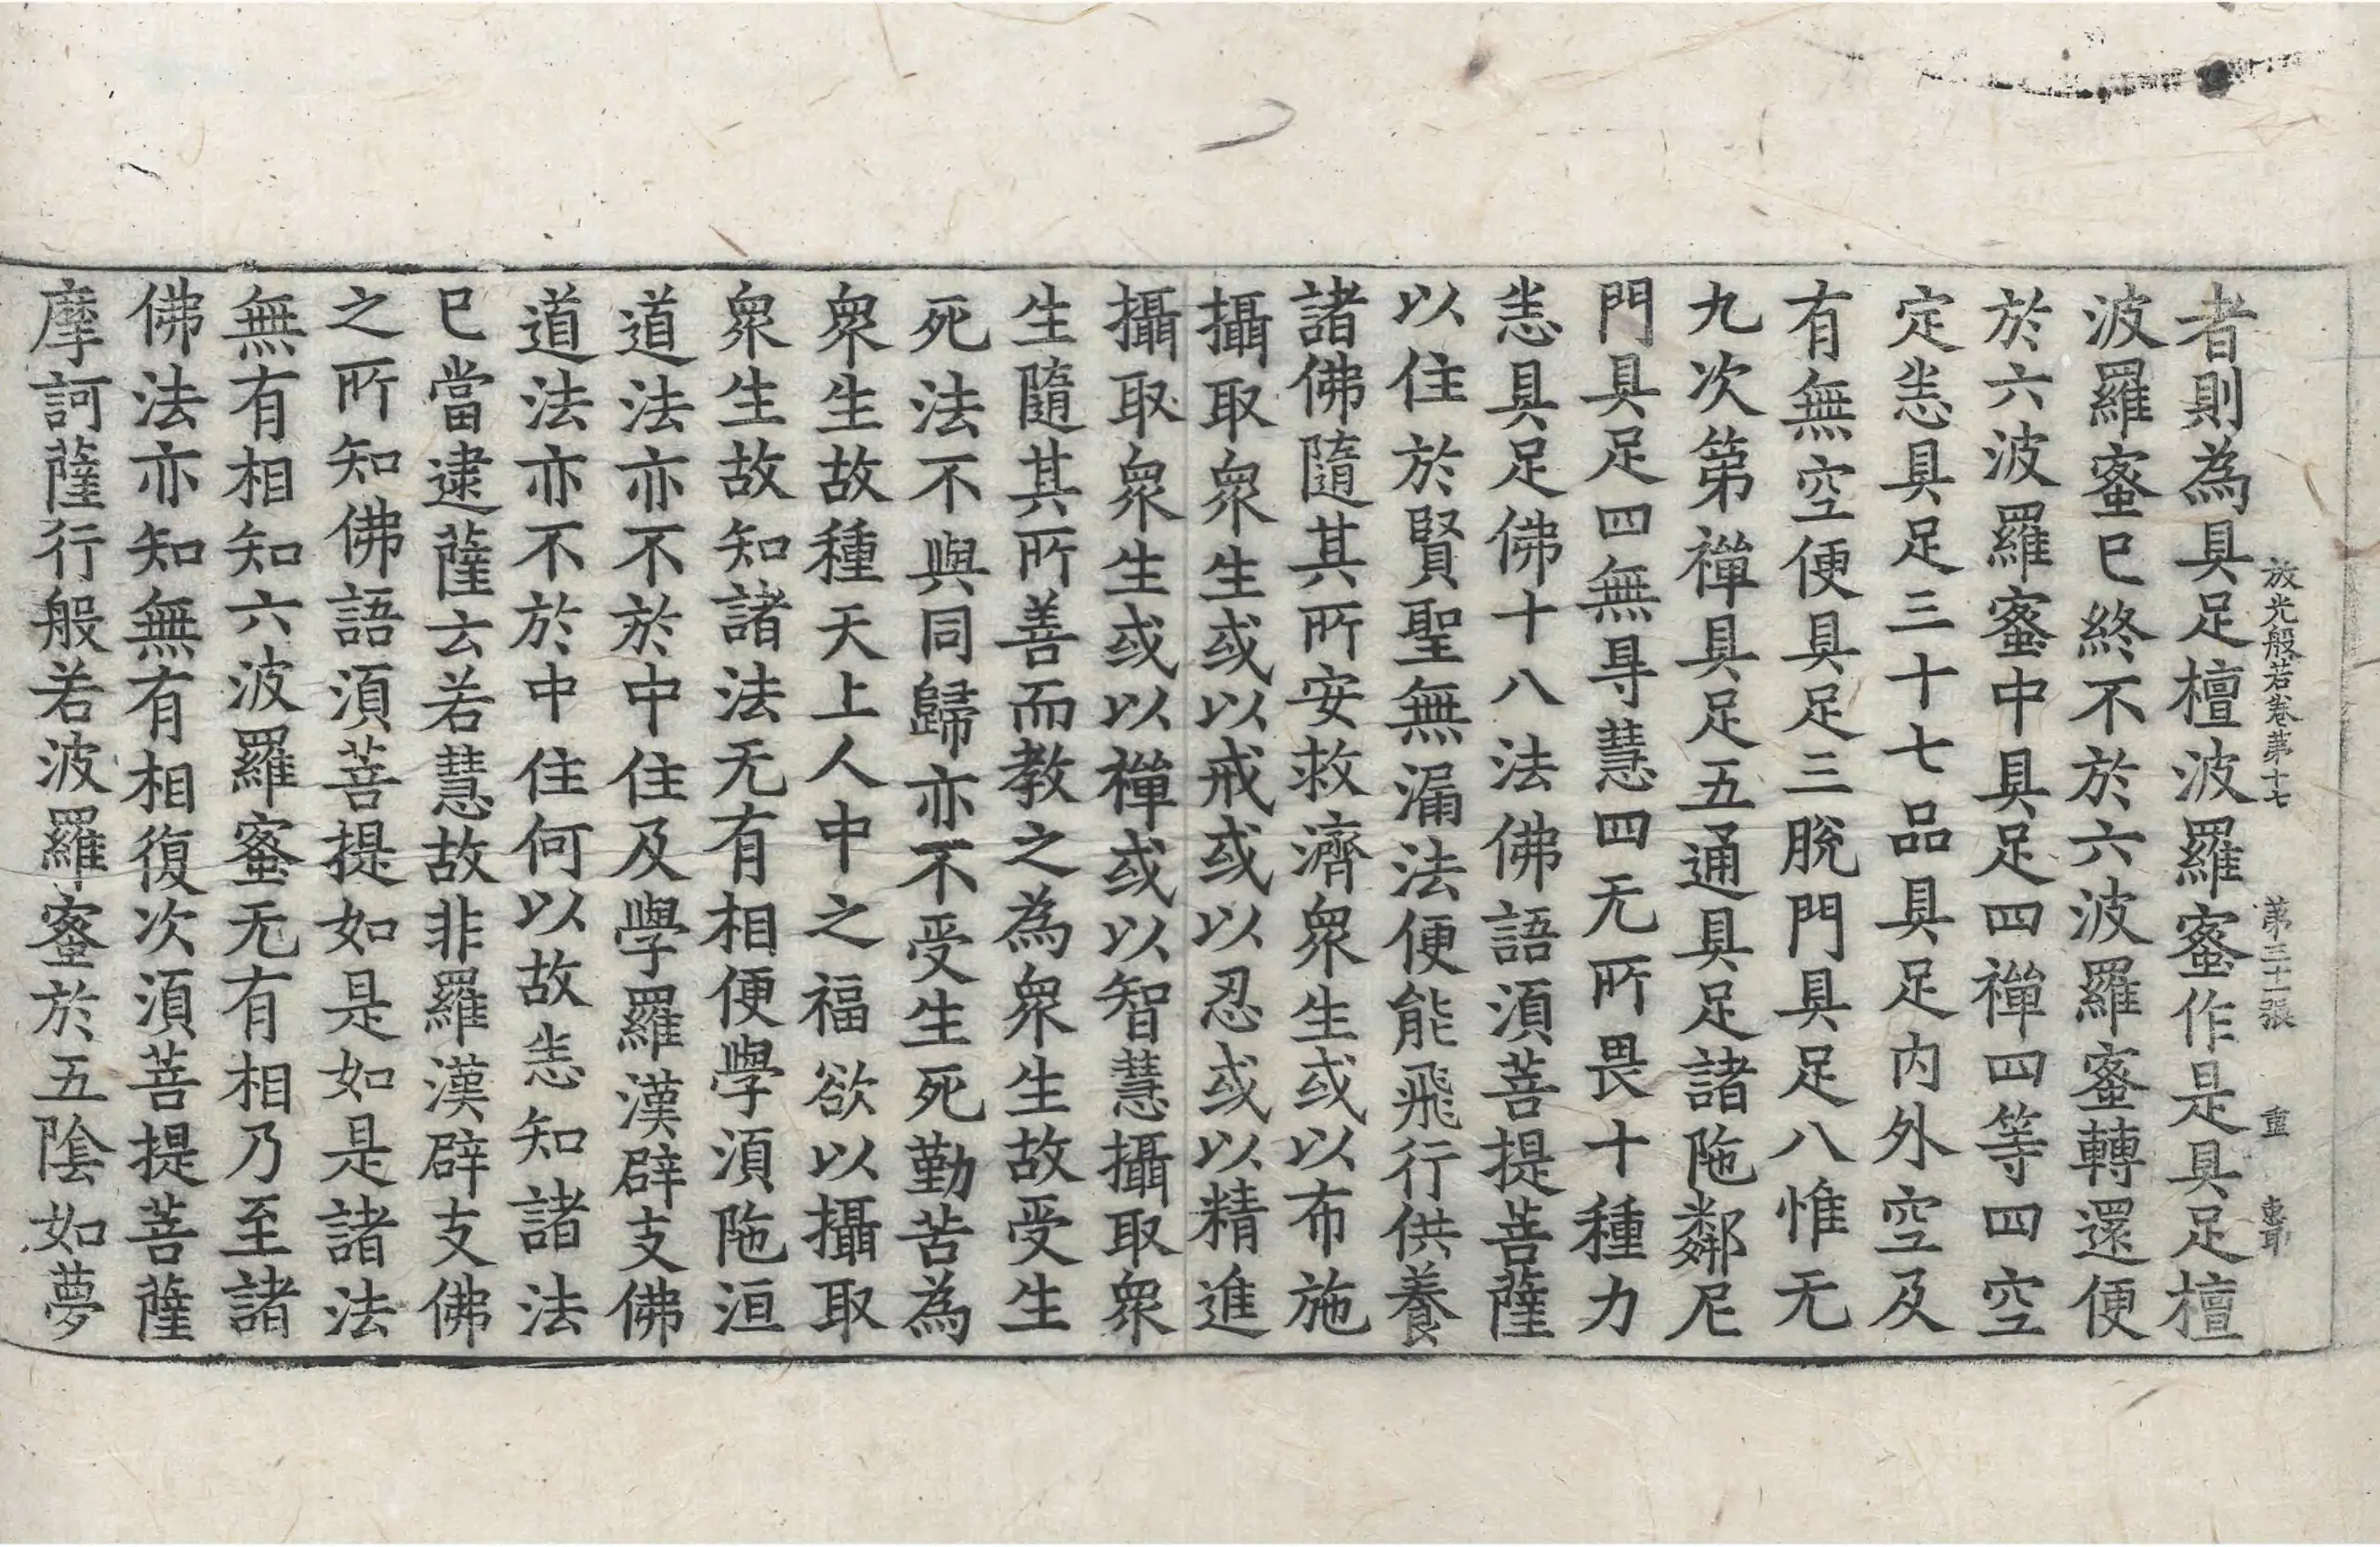 放光般若卷第十七 第三十一張 重
者則為具足檀波羅蜜作是具足檀
波羅蜜已終不於六波羅蜜轉還便
於六波羅蜜中具足四禪四等四空
定恙具足三十七品具足內外空及
有無空便具足三脫門具足八惟无
九次第禪具足五通具足諸陁鄰尼
門具足四無㝵慧四无所畏十種力
恙具足佛十八法佛語須菩提菩薩
以住於賢聖無漏法便能飛行供養
諸佛隨其所安救濟眾生或以布施
攝取眾生或以戒或以忍或以精進
攝取眾生或以禪或以智慧攝取眾
生隨其所善而教之為眾生故受生
死法不與同歸亦不受生死勤苦為
眾生故種天上人中之福欲以攝取
眾生故知諸法无有相便學須陁洹
道法亦不於中住及學羅漢辟支佛
道法亦不於中住何以故恙知諸法
已當逮薩云若慧故非羅漢辟支佛
之所知佛語須菩提如是如是諸法
無有相知六波羅蜜无有相乃至諸
佛法亦知無有相復次須菩提菩薩
摩訶薩行般若波羅蜜於五陰如夢